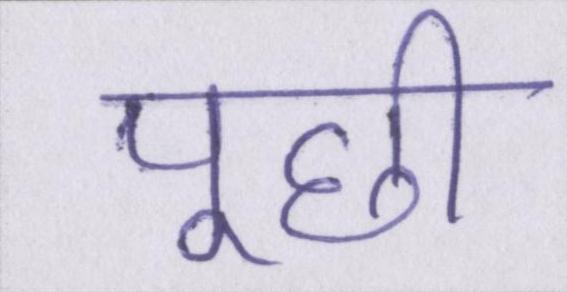 पूछी